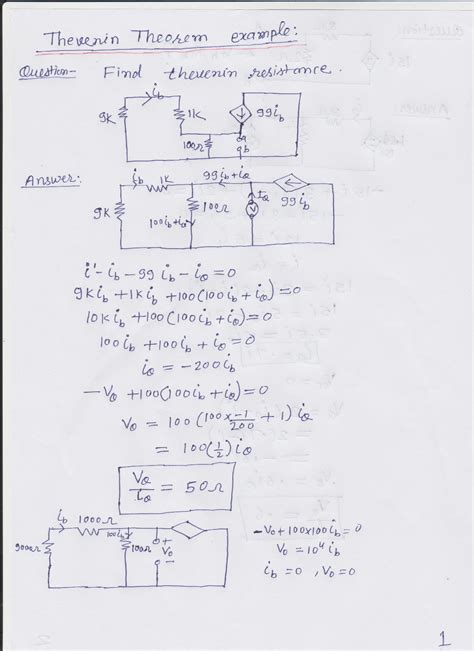 Thevenin Theorem example:
Question- Find thevenin resistance.
i_b
9K 1K 99i_b
100Ω
a b
Answer:
i_b 1K 99i_b+i_0
9K 100i_b+i_0 100Ω i_0 V 99i_b
i'-i_b-99i_b-i_0=0
9Ki_b+1Ki_b+100(100i_b+i_0)=0
10Ki_b+100(100i_b+i_0)=0
100i_b+100i_b+i_0=0
i_0=-200i_b
-V_0+100(100i_b+i_0)=0
V_0=100(100×-1/200+1)i_0
=100(1/2)i_0
V_0/i_0=50Ω
i_b 1000Ω
9000Ω 100i_b 100Ω + V_0 -
-V_0+100×100i_b=0
V_0=10⁴i_b
i_b=0, V_0=0
1